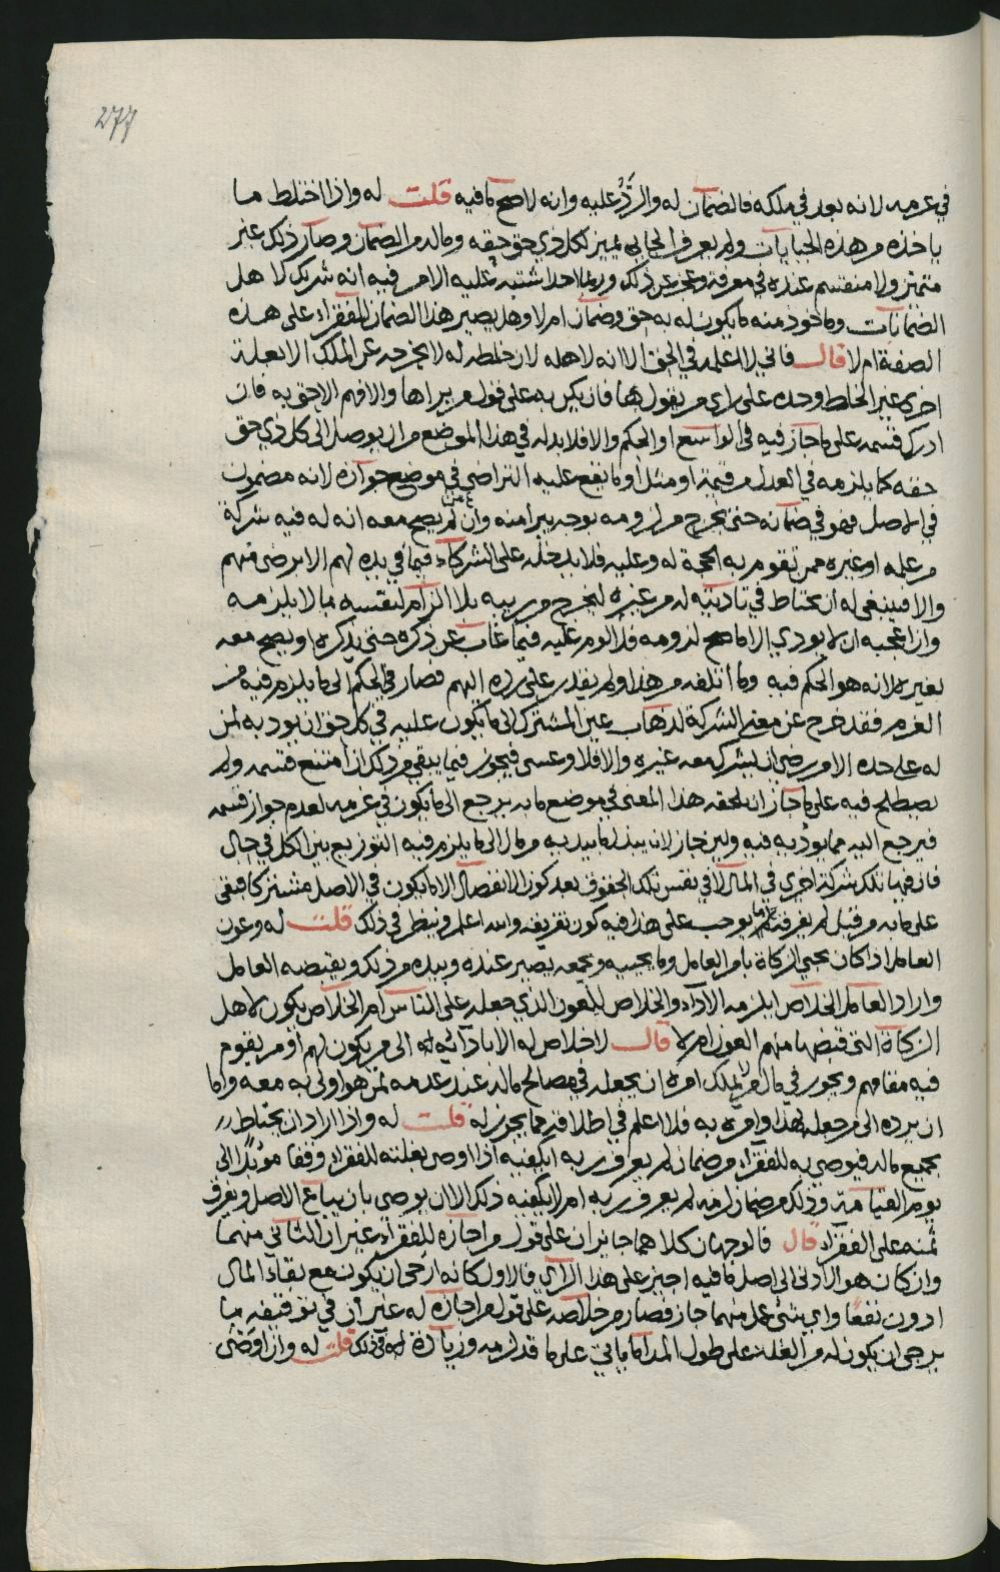 277
في غرمه لانه بعد في ملكه فالضمان له والرَّدُّ عليه وانه لاصح ما فيه قلت له واذا اختلط ما
ياخذه من هذه الجبايات ولم يعرف الجابي يميز لكل ذي حق حقه وماله من الضمان وصار ذلك غير
متميز ولا منقسم عنده في معرفة وعجز عن ذلك وربما احد اشتبه عليه الامر فيه انه شريك لاهل
الضمانات وماخوذ منه ما يكون له به حق وضمان ام لا وهل يصير هذا الضمان للفقراء على هذه
الصفة ام لا قال فاني لا اعلمه في الحق الا انه لاهله لان خلطه له لا يخرجه عن الملك الا لعلة
اخرى غير الخلط وحده على راي من يقول بها فان يكن به على قول من يراها والا فهم الاحق به فان
ادرك قسمه على ما جاز فيه في الواسع او الحكم والا فلا بد له في هذا الموضع من ان يوصل الى كل ذي حق
حقه كما يلزمه في العدل من قيمة او مثل او ما يقع عليه التراضي في موضع جوازه لانه مضمون
في الاصل فهو في ضمانه حتى يخرج من لزومه بوجه يبرا منه وان لم يصح معه انه له فيه شركة
من علمه او غيره ممن تقوم به الحجة له وعليه فلا يدخله على الشركاء فيما في يده لهم الا برضى منهم
والا فينبغي له ان يحتاط في تاديته له من غيره ليخرج من ريبه بلا الزام لنفسه ما لا يلزمه
وان اعجبه ان لا يودي الا ما صح لزومه فلا لوم عليه فيما غاب عن ذكره حتى يذكره او يصح معه
بغيره لانه هو الحكم فيه وما اتلفه من هذا ولم يقدر على رده اليهم فصار في الحكم الى ما يلزمه فيه من
الغرم فقد خرج عن معنى الشركة لذهاب عين المشترك الى ما يكون عليه في كل حق ان يود به لمن
له على حده الا من رضي ان يشركه معه غيره والا فلا وعسى فيجوز فيما يبقى من ذلك ان امتنع قسمه ولم
يصطلح فيه على ما جاز ان يلحقه هذا المعنى في موضع ما به يرجع الى ما يكون في غرمه لعدم جواز قسمه
فيرجع اليه مما يودّ به فيه ولئن جاز لان يبذل ما بيديه من مال الى ما يلزم فيه التوزيع بين الكل في حال
فان فيها تلك شركة اخرى في المال لا في نفس تلك الحقوق بعد كون الانفصال الا ما يكون في الاصل مشتركا فبقي
على ما به من قبل لم يفرقه ما يوجب على هذا فيه كون تفريقه والله اعلم وينظر في ذلك قلت له وعون
العامل اذا كان يجبي الزكاة بامر العامل وما يجبيه ويجمعه يصير عنده وبيده من ذلك ويقبضه العامل
واراد العامل الخلاص ايلزمه الاداء والخلاص للعون الذي جعله على الناس ام الخلاص يكون لاهل
الزكاة التي قبضها منهم العون ام لا قال لا خلاص له الا بادائه الى من يكون لهم او من يقوم
فيه مقامهم ويجوز في مال من لا يملك امره ان يجعله في مصالح ماله عند عدمه لمن هو اولى به معه واما
ان يرده الى من جعله لهذا وامره به فلا اعلم في اطلاقه مما يجوز له قلت له واذا اراد ان يحتاط
بجميع ماله فيوصي به للفقراء من ضمان لم يعرف ربه ايكفيه اذا اوصى بغلته للفقراء وقفا مؤبدًا الى
يوم القيامة وذلك من ضمان لزمه لم يعرف ربه ام لا يكفيه ذلك الا ان يوصي بان يباع الاصل ويفرق
ثمنه على الفقراء قال فالوجهان كلاهما جايزان على قول من اجازه للفقراء غير ان الثاني منهما
وان كان هو الادنى الى اصل ما فيه اجيز على هذا الراي فالاول كانه ارجى ان يكون مع بقاء المال
ادون نفعًا واي شئ عمل منهما جاز فصار من خلاصه على قول من اجازه له غير ان في توقيفه ما
يرجى ان يكون له من الغلة على طول المدا ما ياتي على ما قد لزمه وزيادة له في ذلك قلت له وان اوصى